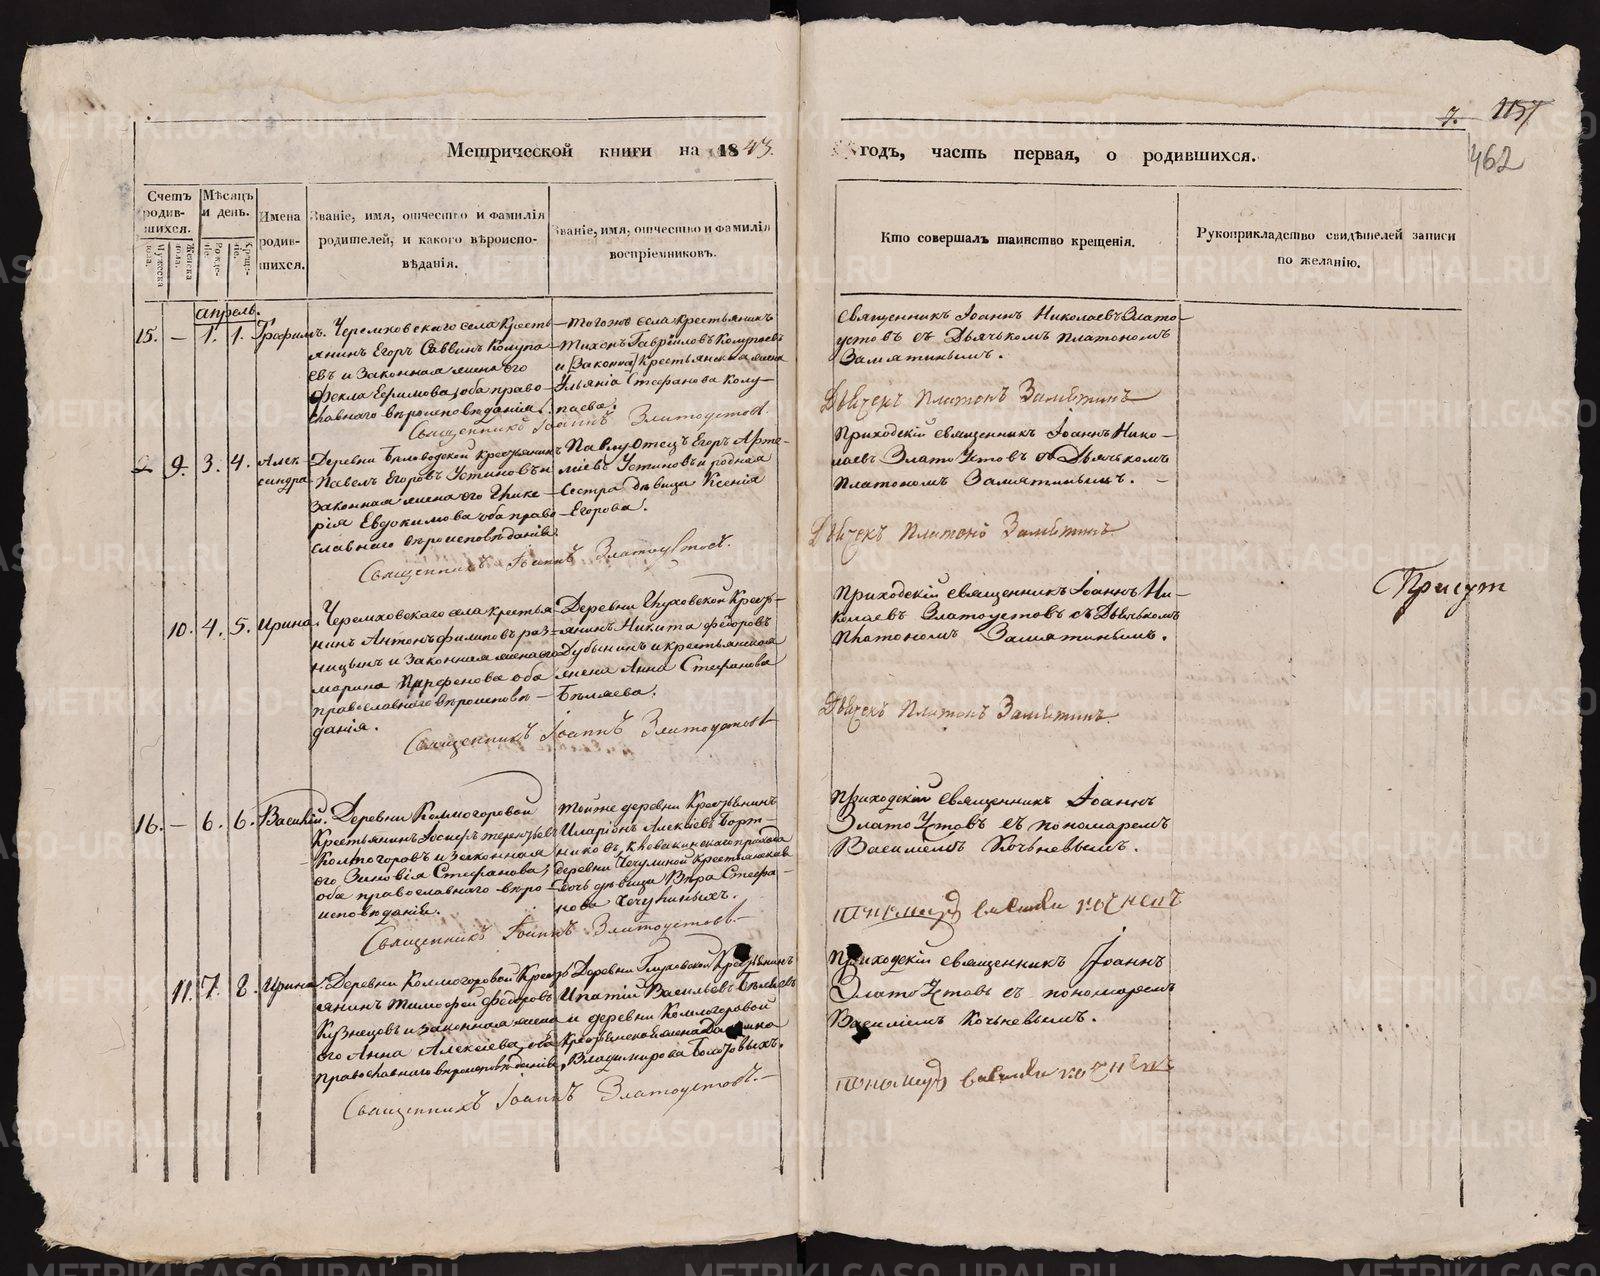 7. 1157
462
Метрической книги на 1843.
годъ, часть первая, о родившихся.
Счетъ родив-шихся.
Мужеска пола.
Женска пола.
Мѣсяцъ и день.
Рожде-ніе.
Креще-ніе.
Имена родив-шихся.
Званіе, имя, отчество и фамилія
родителей, и какого вѣроиспо-
вѣданія.
Званіе, имя, отчество и фамилія
воспріемниковъ.
Кто совершалъ таинство крещенія.
Рукоприкладство свидѣтелей записи
по желанію.
апрель.
15. — 1. 1. Трафимъ.
Черемховскаго села Кресть-
янинъ Егоръ Саввинъ Колупа-
евъ и Законная жена его
Фекла Ефимова, оба право-
славнаго вѣроисповѣданія.
тогоже села крестьянинъ
Тихонъ Гавриловъ Колупаевъ
и [Законна] Крестьянская жена
Ульянія Стефанова Колу-
паева.
Священникъ Іоаннъ Златоустов
Священникъ Іоаннъ НиколаевъЗлато-
устовъ съ Дьячкомъ Платономъ
Замятинымъ.
Дьячекъ Платонъ Замятинъ
9. 3. 4. Алек-
сандра
Деревни Крестьянинъ
Павелъ Егоровъ Устиновъ и
законная жена его Глике-
рія Евдокимова оба право-
славнаго вѣроисповѣданія.
Отецъ Егоръ Арте-
міевъ Устиновъ и родная
Сестра дѣвица Ксенія
Егорова.
Священникъ Іоаннъ Златоустовъ.
Приходскій священникъ Іоаннъ Нико-
лаевъ Златоустовъ съ Дьячкомъ
Платономъ Замятинымъ.
Дьячекъ Платонъ Замятинъ
10. 4. 5. Ирина.
Черемховскаго села крестья-
нинъ Антонъ Филиповъ Раз-
ницынъ и Законная жена его
Марина Парфенова оба
православнаго вѣроисповѣ-
данія.
Деревни Глуховской Кресть-
янинъ Никита Федоровъ
Дубынинъ и крестьянская
жена Анна Стефанова
Бѣляева.
Священникъ Іоаннъ Златоустов
Приходскій священникъ Іоаннъ Ни-
колаевъ Златоустовъ съ Дьячкомъ
Платономъ Замятинымъ.
Дьячекъ Платонъ Замятинъ
16. — 6. 6. Василій.
Деревни Колмогоровой
Крестьянинъ Іосифъ Терентьевъ
Колмогоровъ и законная
его Зиновія Стефанова,
оба православнаго вѣро-
исповѣданія.
тойже деревни Крестьянинъ
Иларіонъ Алексѣевъ Борт-
никовъ, прихода
деревни Чечулиной крестьянская
дочь дѣвица Вѣра Стефа-
нова Чечулиныхъ.
Священникъ Іоаннъ Златоустовъ.
Приходскій священникъ Іоаннъ
Златоустовъ съ пономаремъ
Василіемъ Кочневымъ.
пономарь василей кочневъ
11. 7. 8. Ирина.
Деревни Колмогоровой Кресть-
янинъ Тимофей Федоровъ
Кузнецовъ и законная жена
его Анна Алексѣева, оба
православнаго вѣроисповѣданія.
Деревни Глуховской Крестьянинъ
Ипатій Васильевъ Бѣляевъ
и деревни Колмогоровой
Крестьянская жена
Владимирова
Священникъ Іоаннъ Златоустовъ.
Приходскій священникъ Іоаннъ
Златоустовъ съ пономаремъ
Василіемъ Кочневымъ.
пономарь василей кочневъ
Присут
METRIKI.GASO-URAL.RU